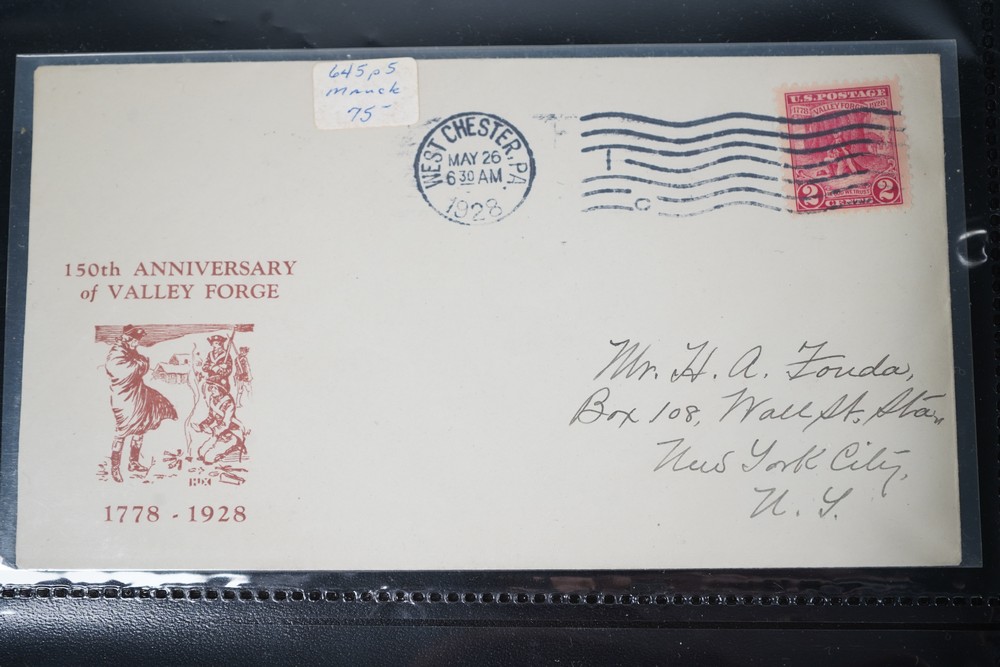 645 p5
Mauck
75-
WEST CHESTER, PA.
MAY 26
6 30 AM
1928
U.S. POSTAGE
1778 VALLEY FORGE 1928
2 IN GOD WE TRUST 2
150th ANNIVERSARY
of VALLEY FORGE
1778 - 1928
Mr. H. A. Fonda,
Box 108, Wall St. Sta.,
New York City,
N. Y.